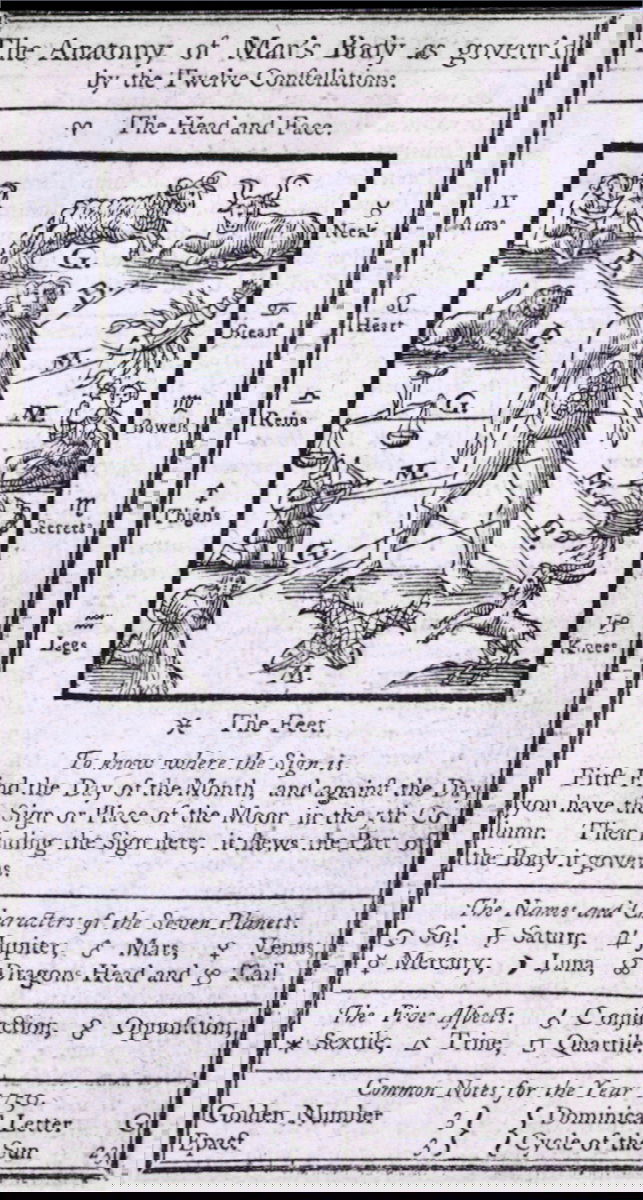 The Anatomy of Man's Body as govern'd
by the Twelve Constellations.
♈ The Head and Face.
Neck ♉
♊ Arms
G.
D
♋ Breast
♌ Heart
M
M
♍ Bowels
♎ Reins
G
M
♏ Secrets
♐ Thighs
G
♒ Legs
♑ Knees
M
♓ The Feet.
To know where the Sign is.
First
the Day of the Month, and against the Day
you have the
Sign or Place of the Moon in the
Co-
lumn. Then
the Sign here, it shews the Part of
the Body it
The Names and
Characters of the Seven Planets.
☉ Sol, ♄ Saturn, ♃
Jupiter, ♂ Mars, ♀ Venus,
☿ Mercury, ☽ Luna, ☊
Dragons Head and ☋ Tail.
The Five Aspects. ☌
Opposition,
✶ Sextile, △ Trine, □ Quartile
Common Notes for the Year
Golden Number 3 } {
Letter G
Epact 3 } { Cycle of the
Sun